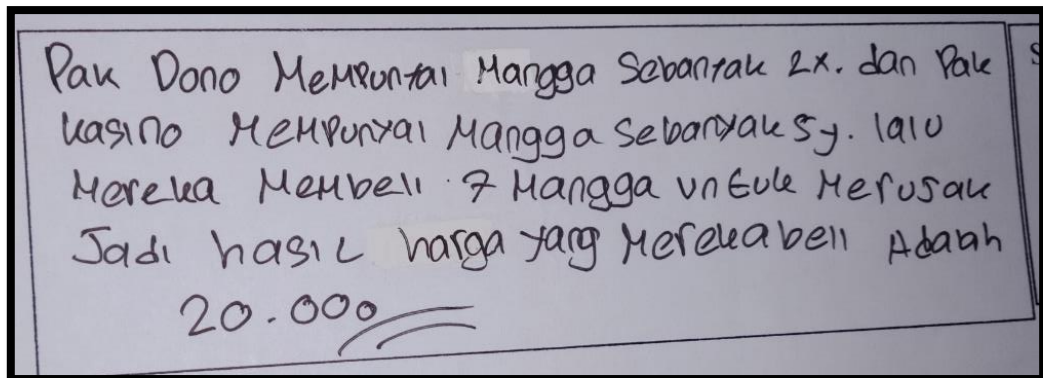 Pak Dono Mempunyai Mangga Sebanyak 2x. dan Pak
kasino Mempunyai Mangga Sebanyak 5y. lalu
Mereka Membeli 7 Mangga untuk Merusak
Jadi hasil harga yang Mereka beli Adalah
20.000